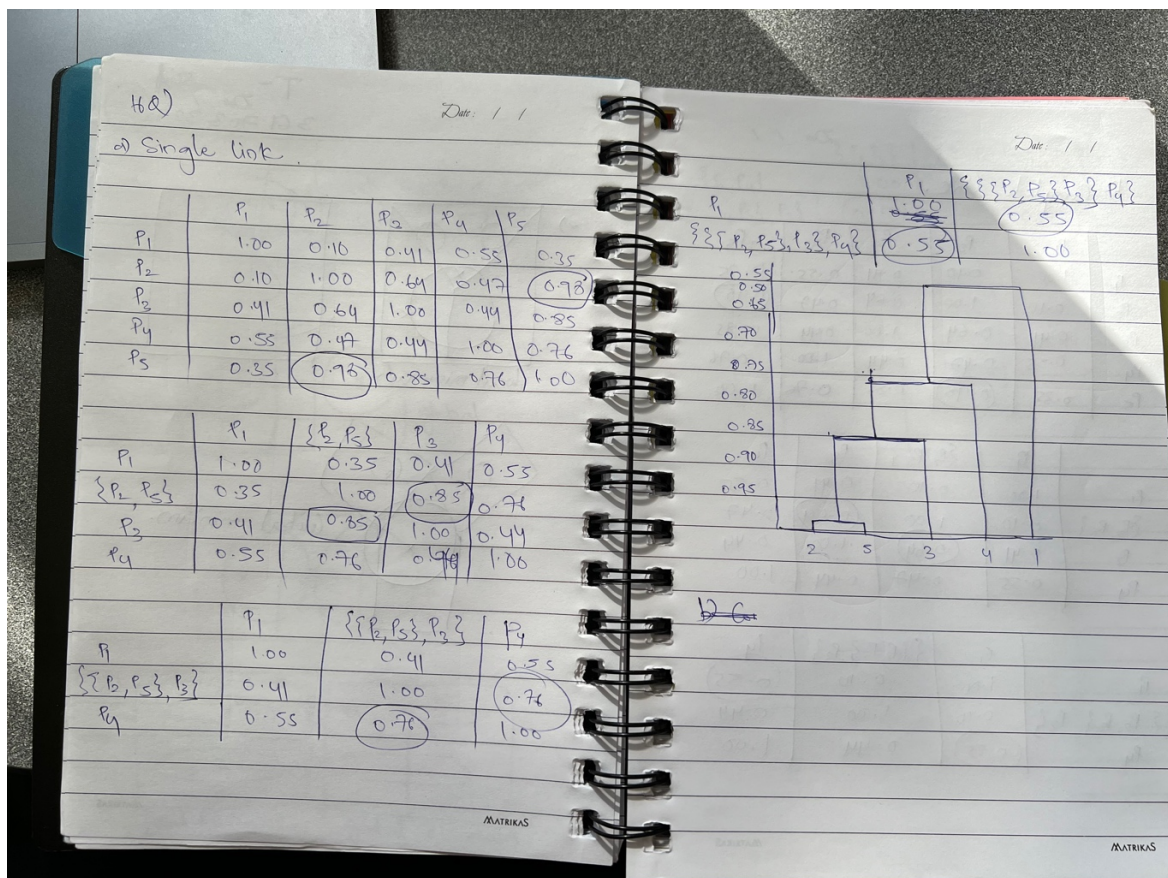 16Q)
Date: / /
a) Single link.
P1 P2 P3 P4 P5
P1 1.00 0.10 0.41 0.55 0.35
P2 0.10 1.00 0.64 0.47 0.98
P3 0.41 0.64 1.00 0.44 0.85
P4 0.55 0.47 0.44 1.00 0.76
P5 0.35 0.98 0.85 0.76 1.00
P1 {P2, P5} P3 P4
P1 1.00 0.35 0.41 0.55
{P2, P5} 0.35 1.00 0.85 0.76
P3 0.41 0.85 1.00 0.44
P4 0.55 0.76 1.00
P1 {{P2, P5}, P3} P4
P1 1.00 0.41 0.55
{{P2, P5}, P3} 0.41 1.00 0.76
P4 0.55 0.76 1.00
MATRIKAS
Date: / /
P1 {{{P2, P5} P3} P4}
P1 1.00 0.55
{{{P2, P5}, P3}, P4} 0.55 1.00
0.55
0.50
0.65
0.70
0.75
0.80
0.85
0.90
0.95
2 5 3 4 1
MATRIKAS